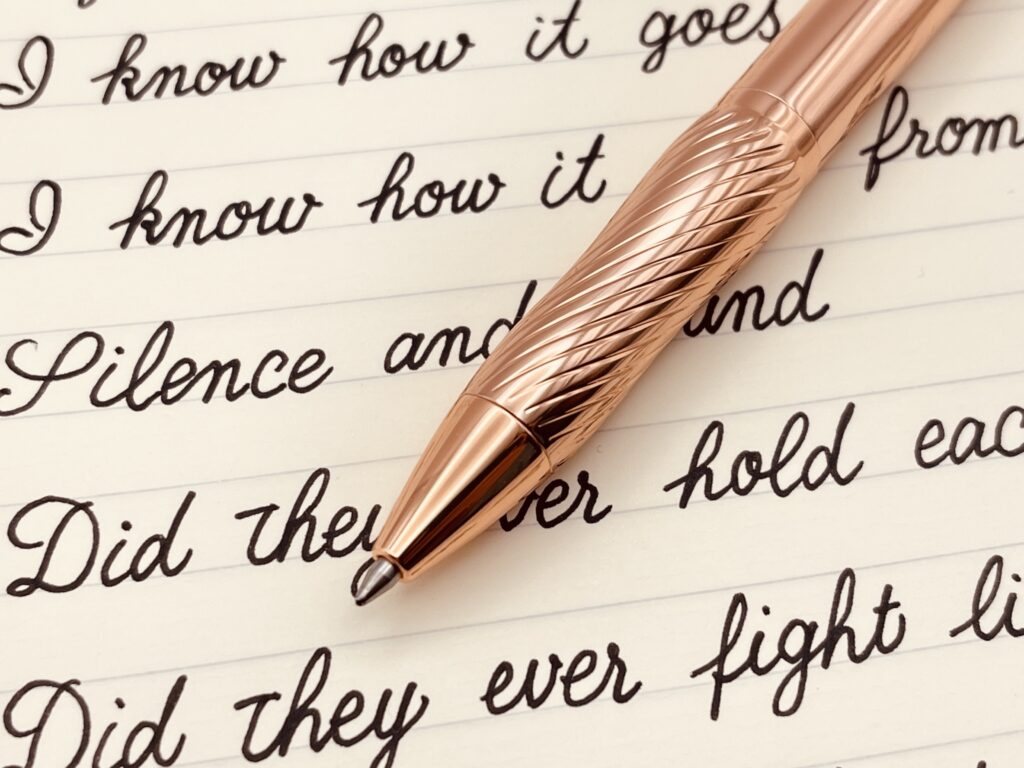 I know how it goes
I know how it from
Silence and
Did they hold
Did they ever fight